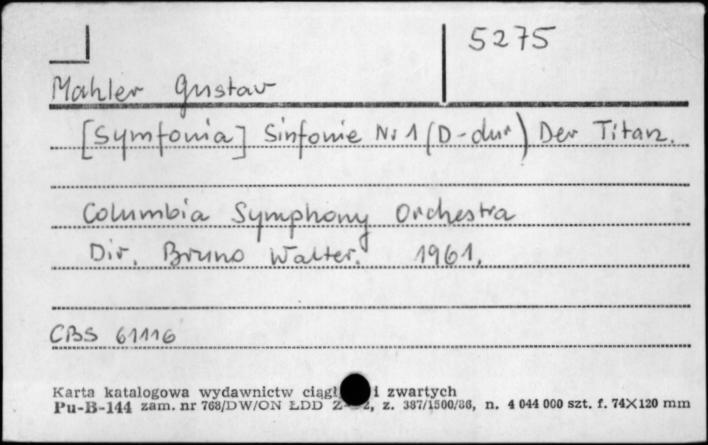 5275
Mahler Gustav
[Symfonia] Sinfonie Nr 1 (D-dur) Der Titan.
Columbia Symphony Orchestra
Dir. Bruno Walter. 1961.
CBS 61116
Karta katalogowa wydawnictw ciągł i zwartych
Pu-B-144 zam. nr 768/DW/ON ŁDD Z- 2, z. 387/1500/86, n. 4 044 000 szt. f. 74×120 mm